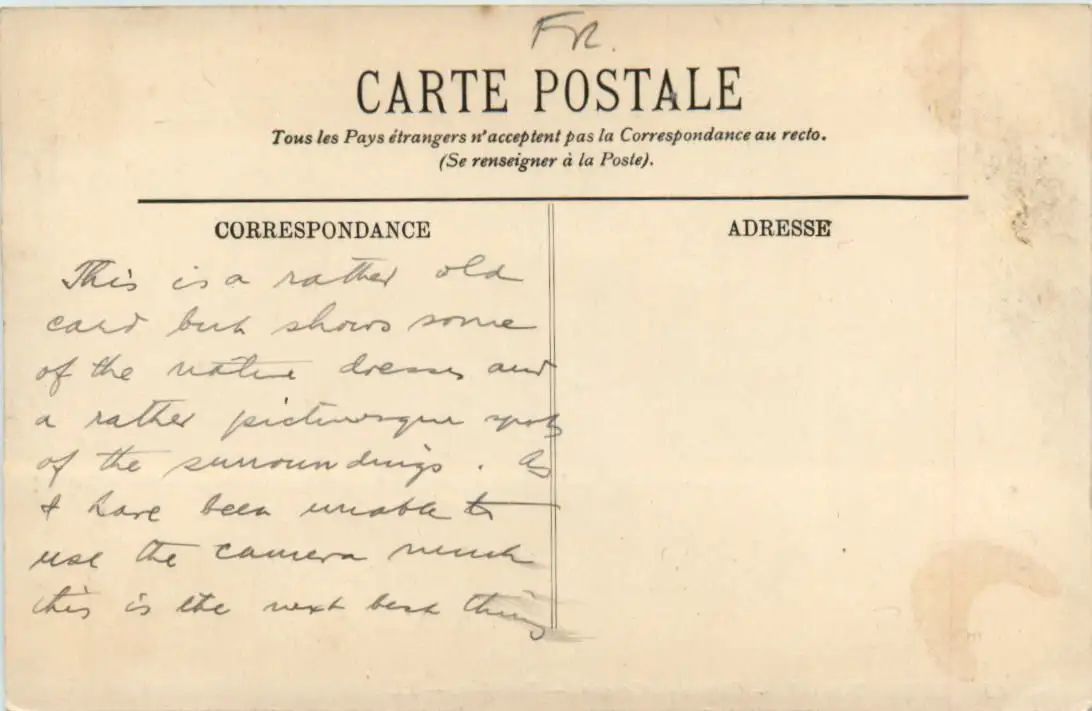 FR.
CARTE POSTALE
Tous les Pays étrangers n'acceptent pas la Correspondance au recto.
(Se renseigner à la Poste).
CORRESPONDANCE
ADRESSE
This is a rather old
card but shows some
of the native dresses and
a rather picturesque spot
of the surroundings. As
I have been unable to
use the camera much
this is the next best thing